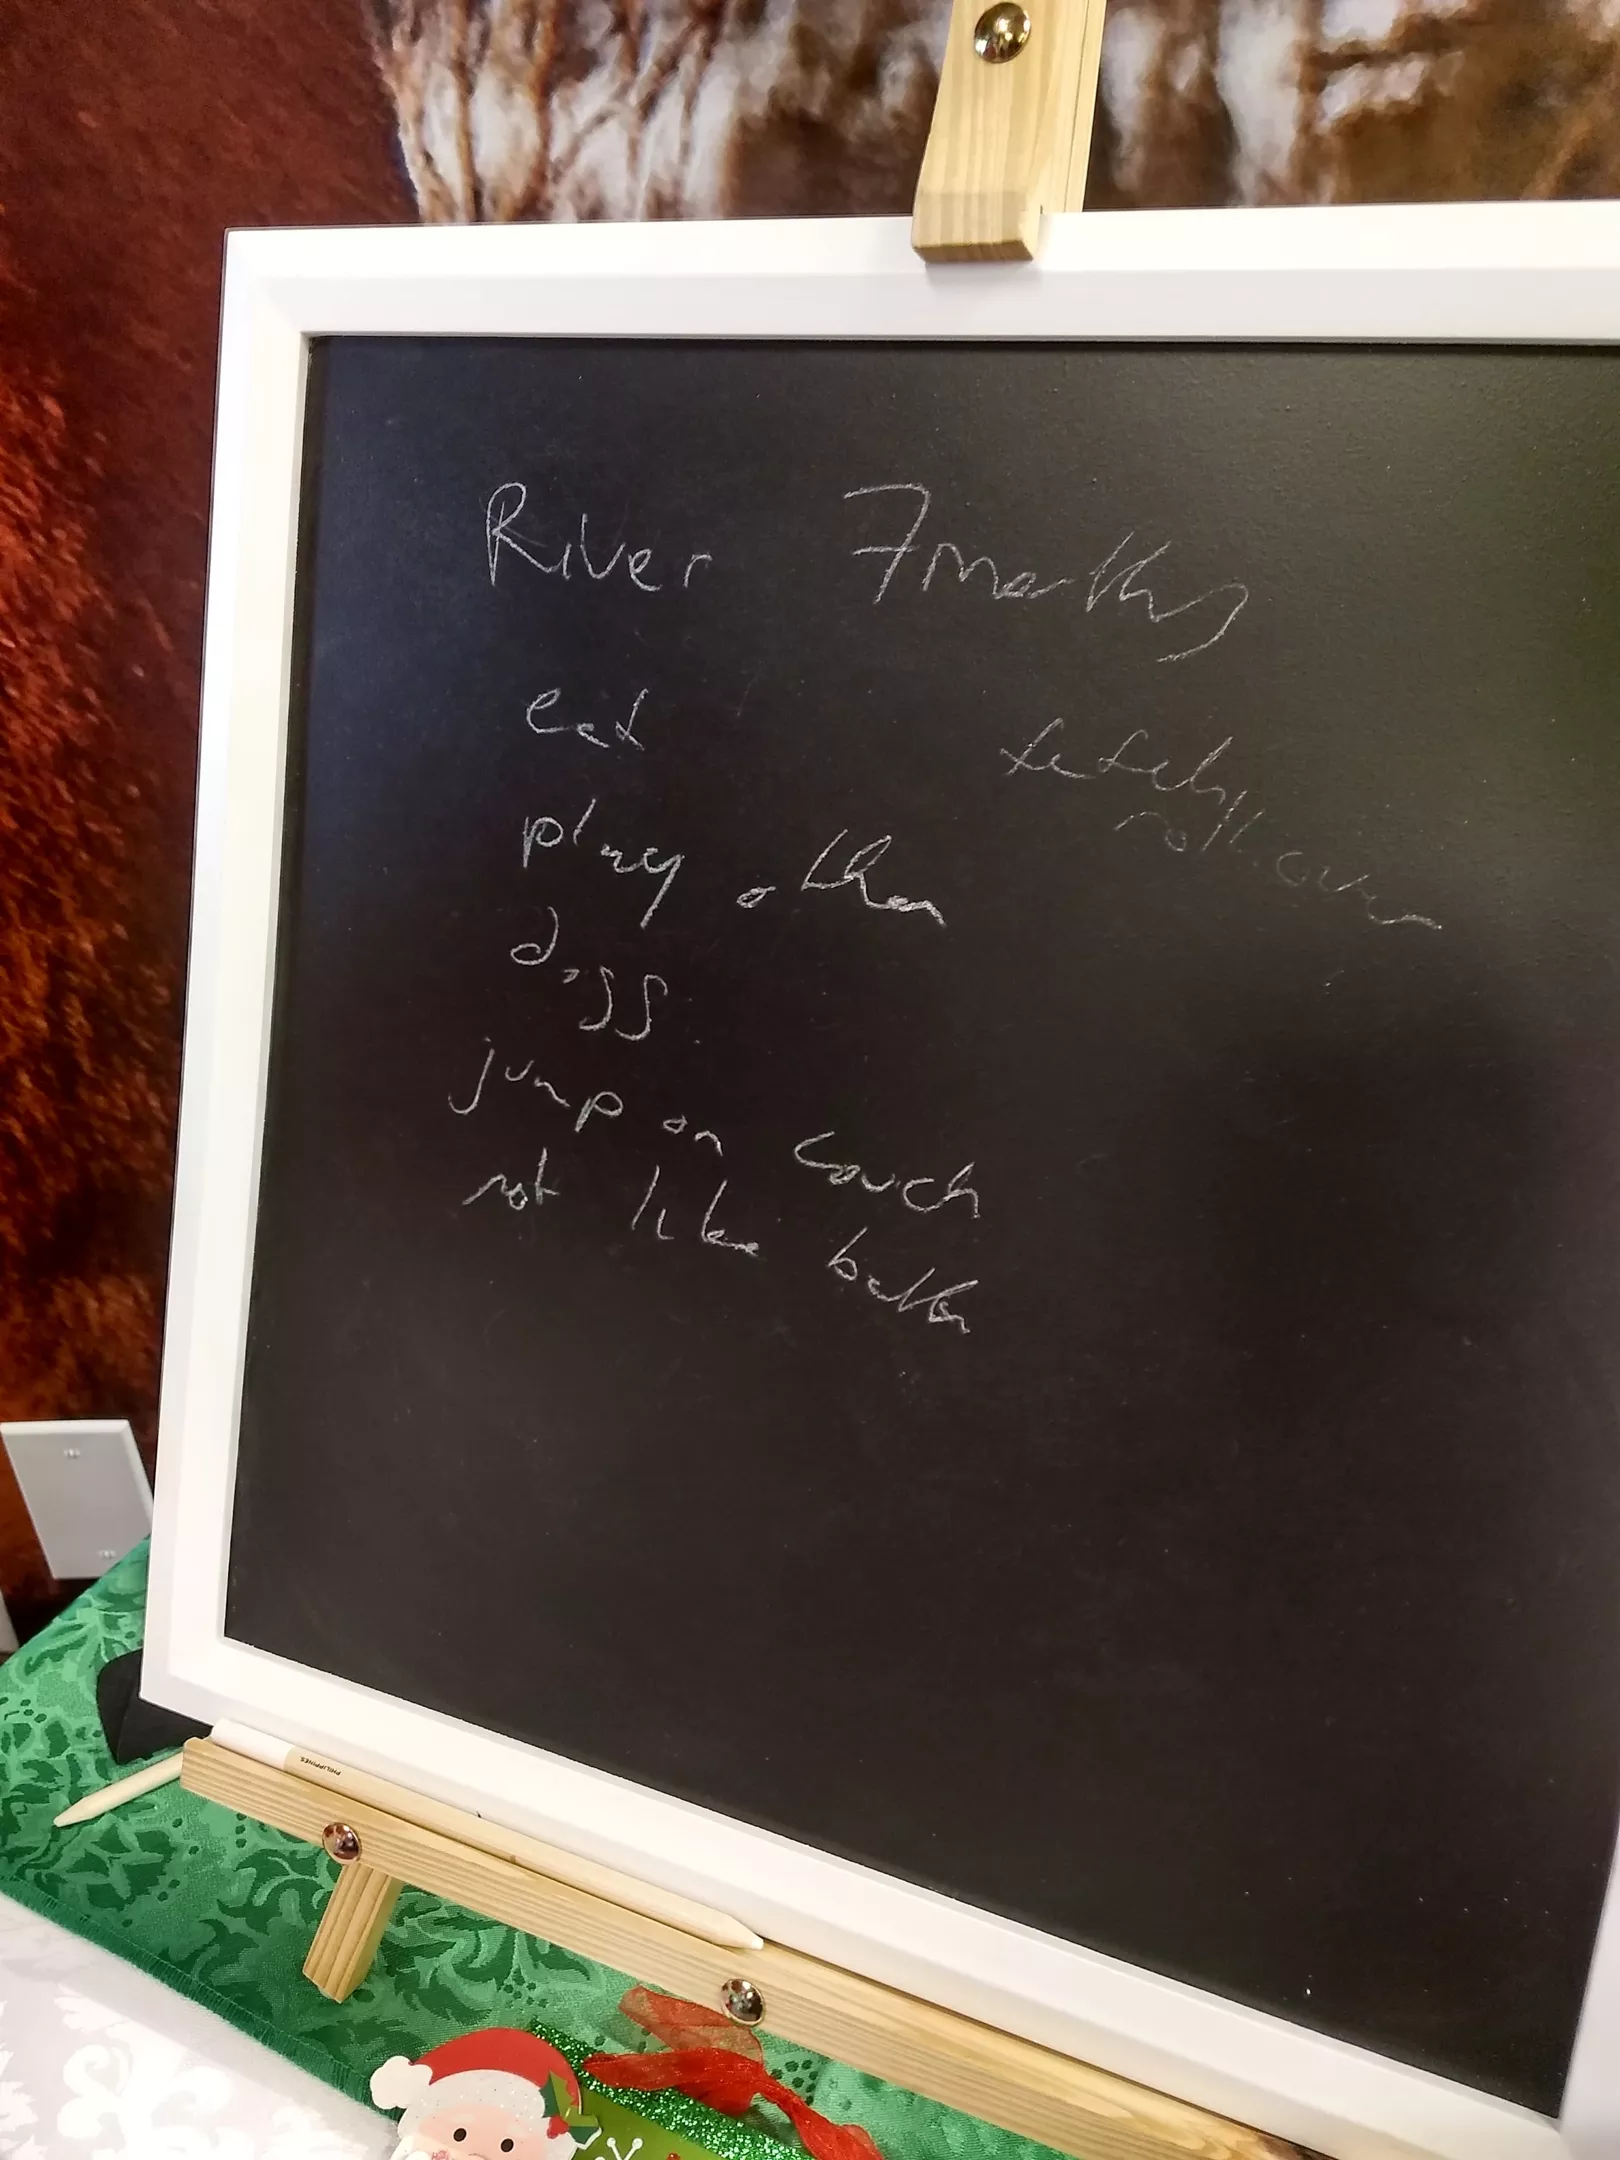 River 7 months
eat
fetch
roll over
play other
dogs
jump on couch
not like bath
PHILIPPINES